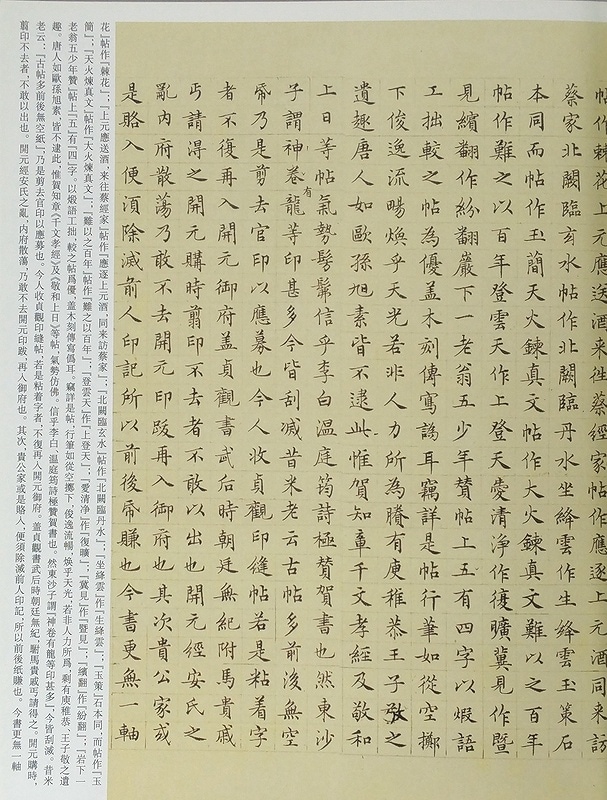 帖作棘花上元應送酒來往蔡經家帖作應逐上元酒同來訪
蔡家北闕臨玄水帖作北闕臨丹水坐絳雲作生絳雲玉策石
本同而帖作玉蕳天火鍊真文帖作大火鍊真文難以之百年
帖作難之以百年登雲天作上登天愛清淨作復曠冀見作暨
見繽翻作紛翻巖下一老翁五少年贊帖上五有四字以煅語
工拙較之帖為優盖木刻傳寫譌耳竊詳是帖行筆如從空擲
下俊逸流暢煥乎天光若非人力所為賸有庾稚恭王子敬之
遺趣唐人如歐孫旭素皆不逮此惟賀知章千文孝經及敬和
上日等帖氣勢髣髴信乎李白溫庭筠詩極贊賀書也然東沙
子謂神卷有龍等印甚多今皆刮滅昔米老云古帖多前後無空
帋乃是剪去官印以應募也今人收貞觀印縫帖若是粘着字
者不復再入開元御府盖貞觀書武后時朝廷無紀附馬貴戚
丐請得之開元購時翦印不去者不敢以出也開元經安氏之
亂內府散蕩乃敢不去開元印跋再入御府也其次貴公家或
是賂入便湏除滅前人印記所以前後帋賺也今書更無一軸
花」帖作「棘花」；「上元應送酒，來往蔡經家」帖作「應逐上元酒，同來訪蔡家」；「北闕臨玄水」帖作「北闕臨丹水」；「坐絳雲」作「生絳雲」；「玉策」石本同，而帖作「玉
簡」；「天火煉真文」帖作「大火煉真文」；「難以之百年」帖作「難之以百年」；「登雲天」作「上登天」；「愛清净」作「復曠」；「冀見」作「暨見」；「繽翻」作「紛翻」；「岩下一
老翁五少年贊」帖上「五」有「四」字。以煅語工拙，較之帖爲優，盖木刻傳寫僞耳。竊詳是帖，行筆如從空擲下，俊逸流暢，焕乎天光，若非人力所爲，剩有庾稚恭、王子敬之遺
趣。唐人如歐孫旭素，皆不逮此，惟賀知章《千文孝經》及《敬和上日》等帖，氣勢仿佛。信乎李白、温庭筠詩極贊賀書也。然東沙子謂「神卷有龍等印甚多」，今皆刮滅。昔米
老云：「古帖多前後無空紙」，乃是剪去官印以應募也。今人收貞觀印縫帖，若是粘着字者，不復再入開元御府。盖貞觀書武后時朝廷無紀，駙馬貴戚丐請得之。開元購時，
翦印不去者，不敢以出也。開元經安氏之亂，内府散蕩，乃敢不去開元印跋，再入御府也。其次，貴公家或是賂人，便須除滅前人印記，所以前後紙賺也。今書更無一軸